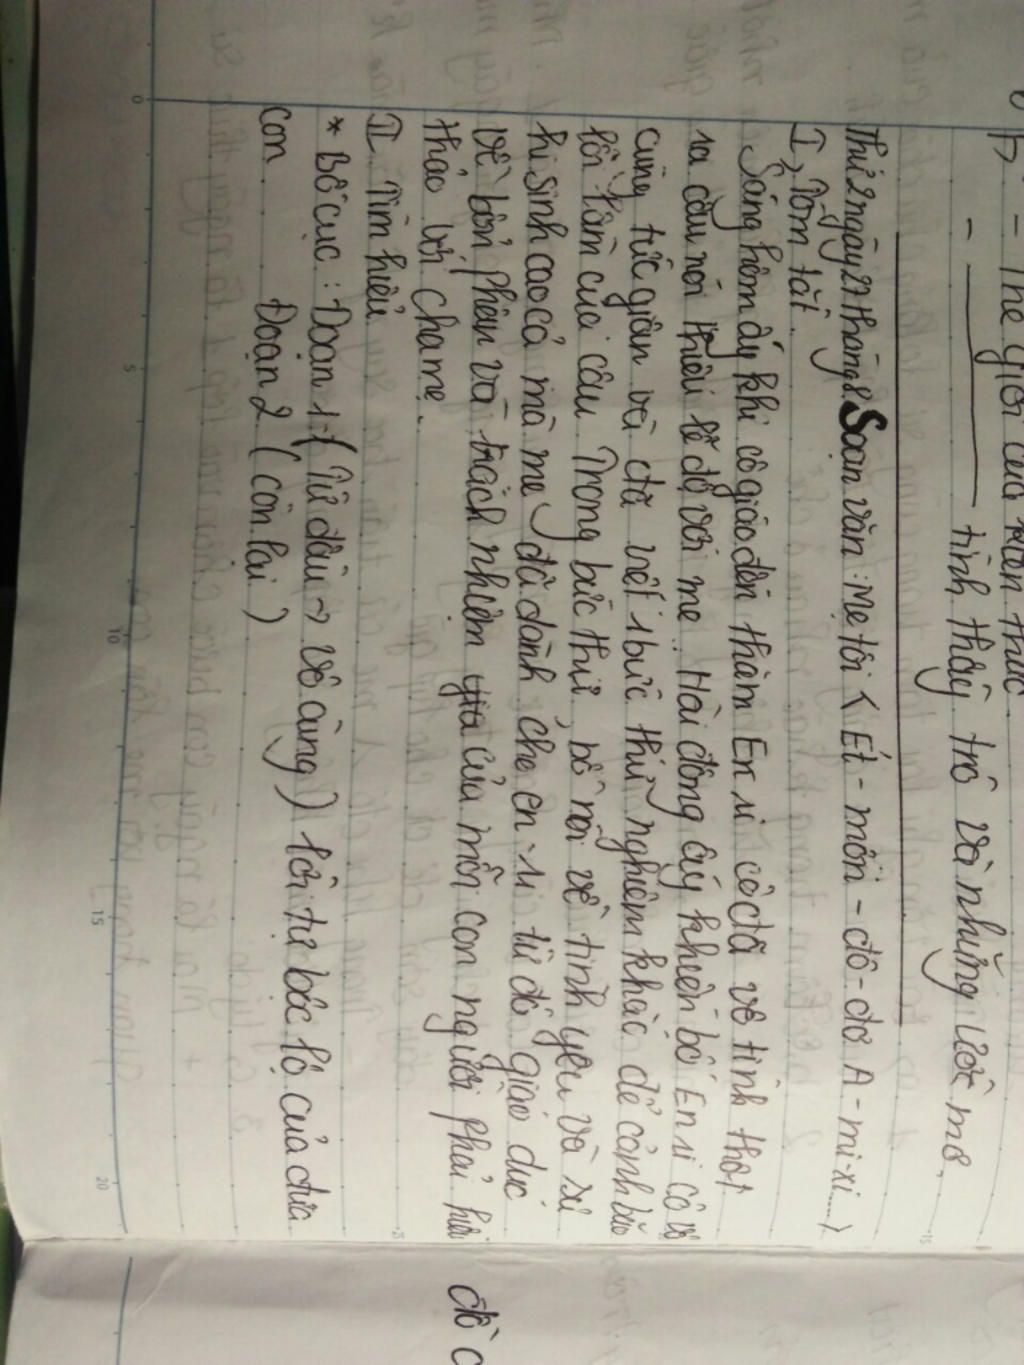 - Thế giới của kiến thức
- tình thầy trò và những ước mơ.
Thứ 2 ngày 27 tháng 8. Soạn văn: Mẹ tôi < Ét - môn - đô - đơ A - mi-xi....)
I, Tóm tắt.
Sáng hôm ấy khi cô giáo đến thăm En ri cô đã vô tình thốt
ra câu nói thiếu lễ độ với mẹ. Hài động ấy khiến bố En ri cô vô
cùng tức giận và đã viết 1 bức thư nghiêm khắc để cảnh báo
lỗi lầm của cậu. Trong bức thư, bố nói về tình yêu và sự
hi sinh cao cả mà mẹ đã dành cho en-ri từ đó giáo dục
về bổn phận và trách nhiệm của mỗi con người phải hiếu
thảo với cha mẹ.
II. Tìm hiểu
* Bố cục: Đoạn 1: ( Từ đầu -> vô cùng ) lời tự bộc lộ của đứa
con.
Đoạn 2 ( còn lại )